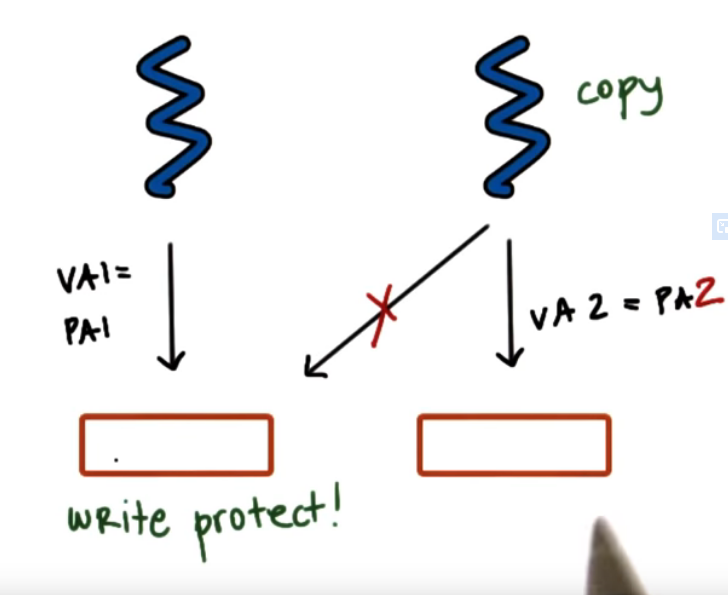 copy
VA1 =
PA1
VA 2 = PA2
write protect!